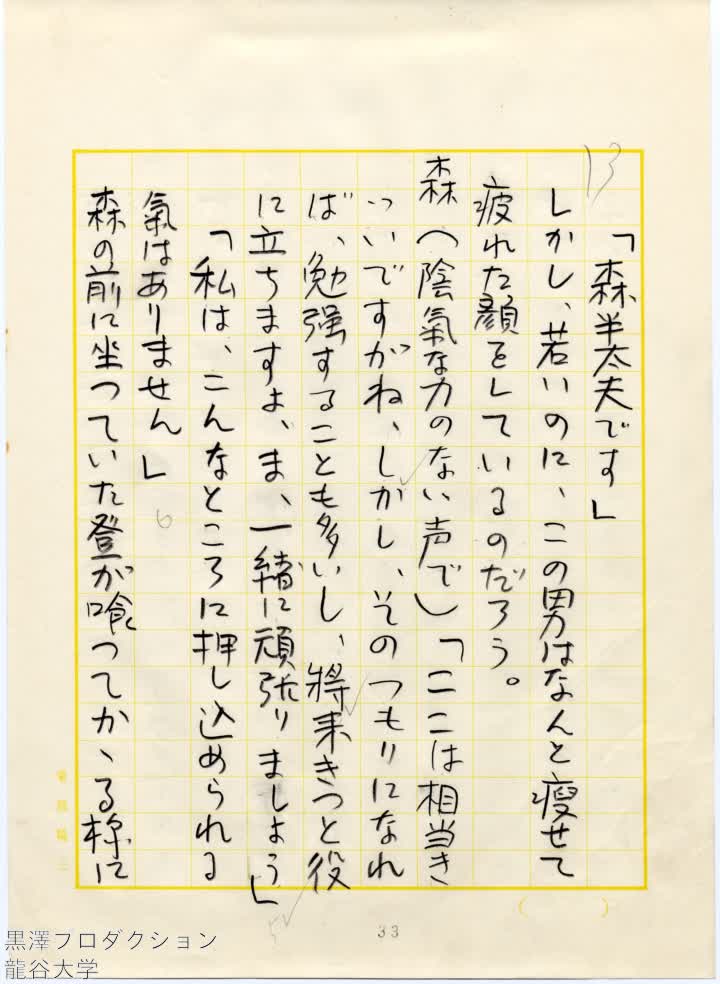 13
「森半太夫です」
しかし、若いのに、この男はなんと瘦せて
疲れた顔をしているのだろう。
森（陰氣な力のない声で）「ここは相当き
ついですがね、しかし、そのつもりになれ
ば、勉强することも多いし、將来きつと役
に立ちますよ、ま、一緒に頑張りましよう」
「私は、こんなところに押し込められる
氣はありません」
森の前に坐つていた登が喰つてかゝる様に
33
黒澤プロダクション
龍谷大学